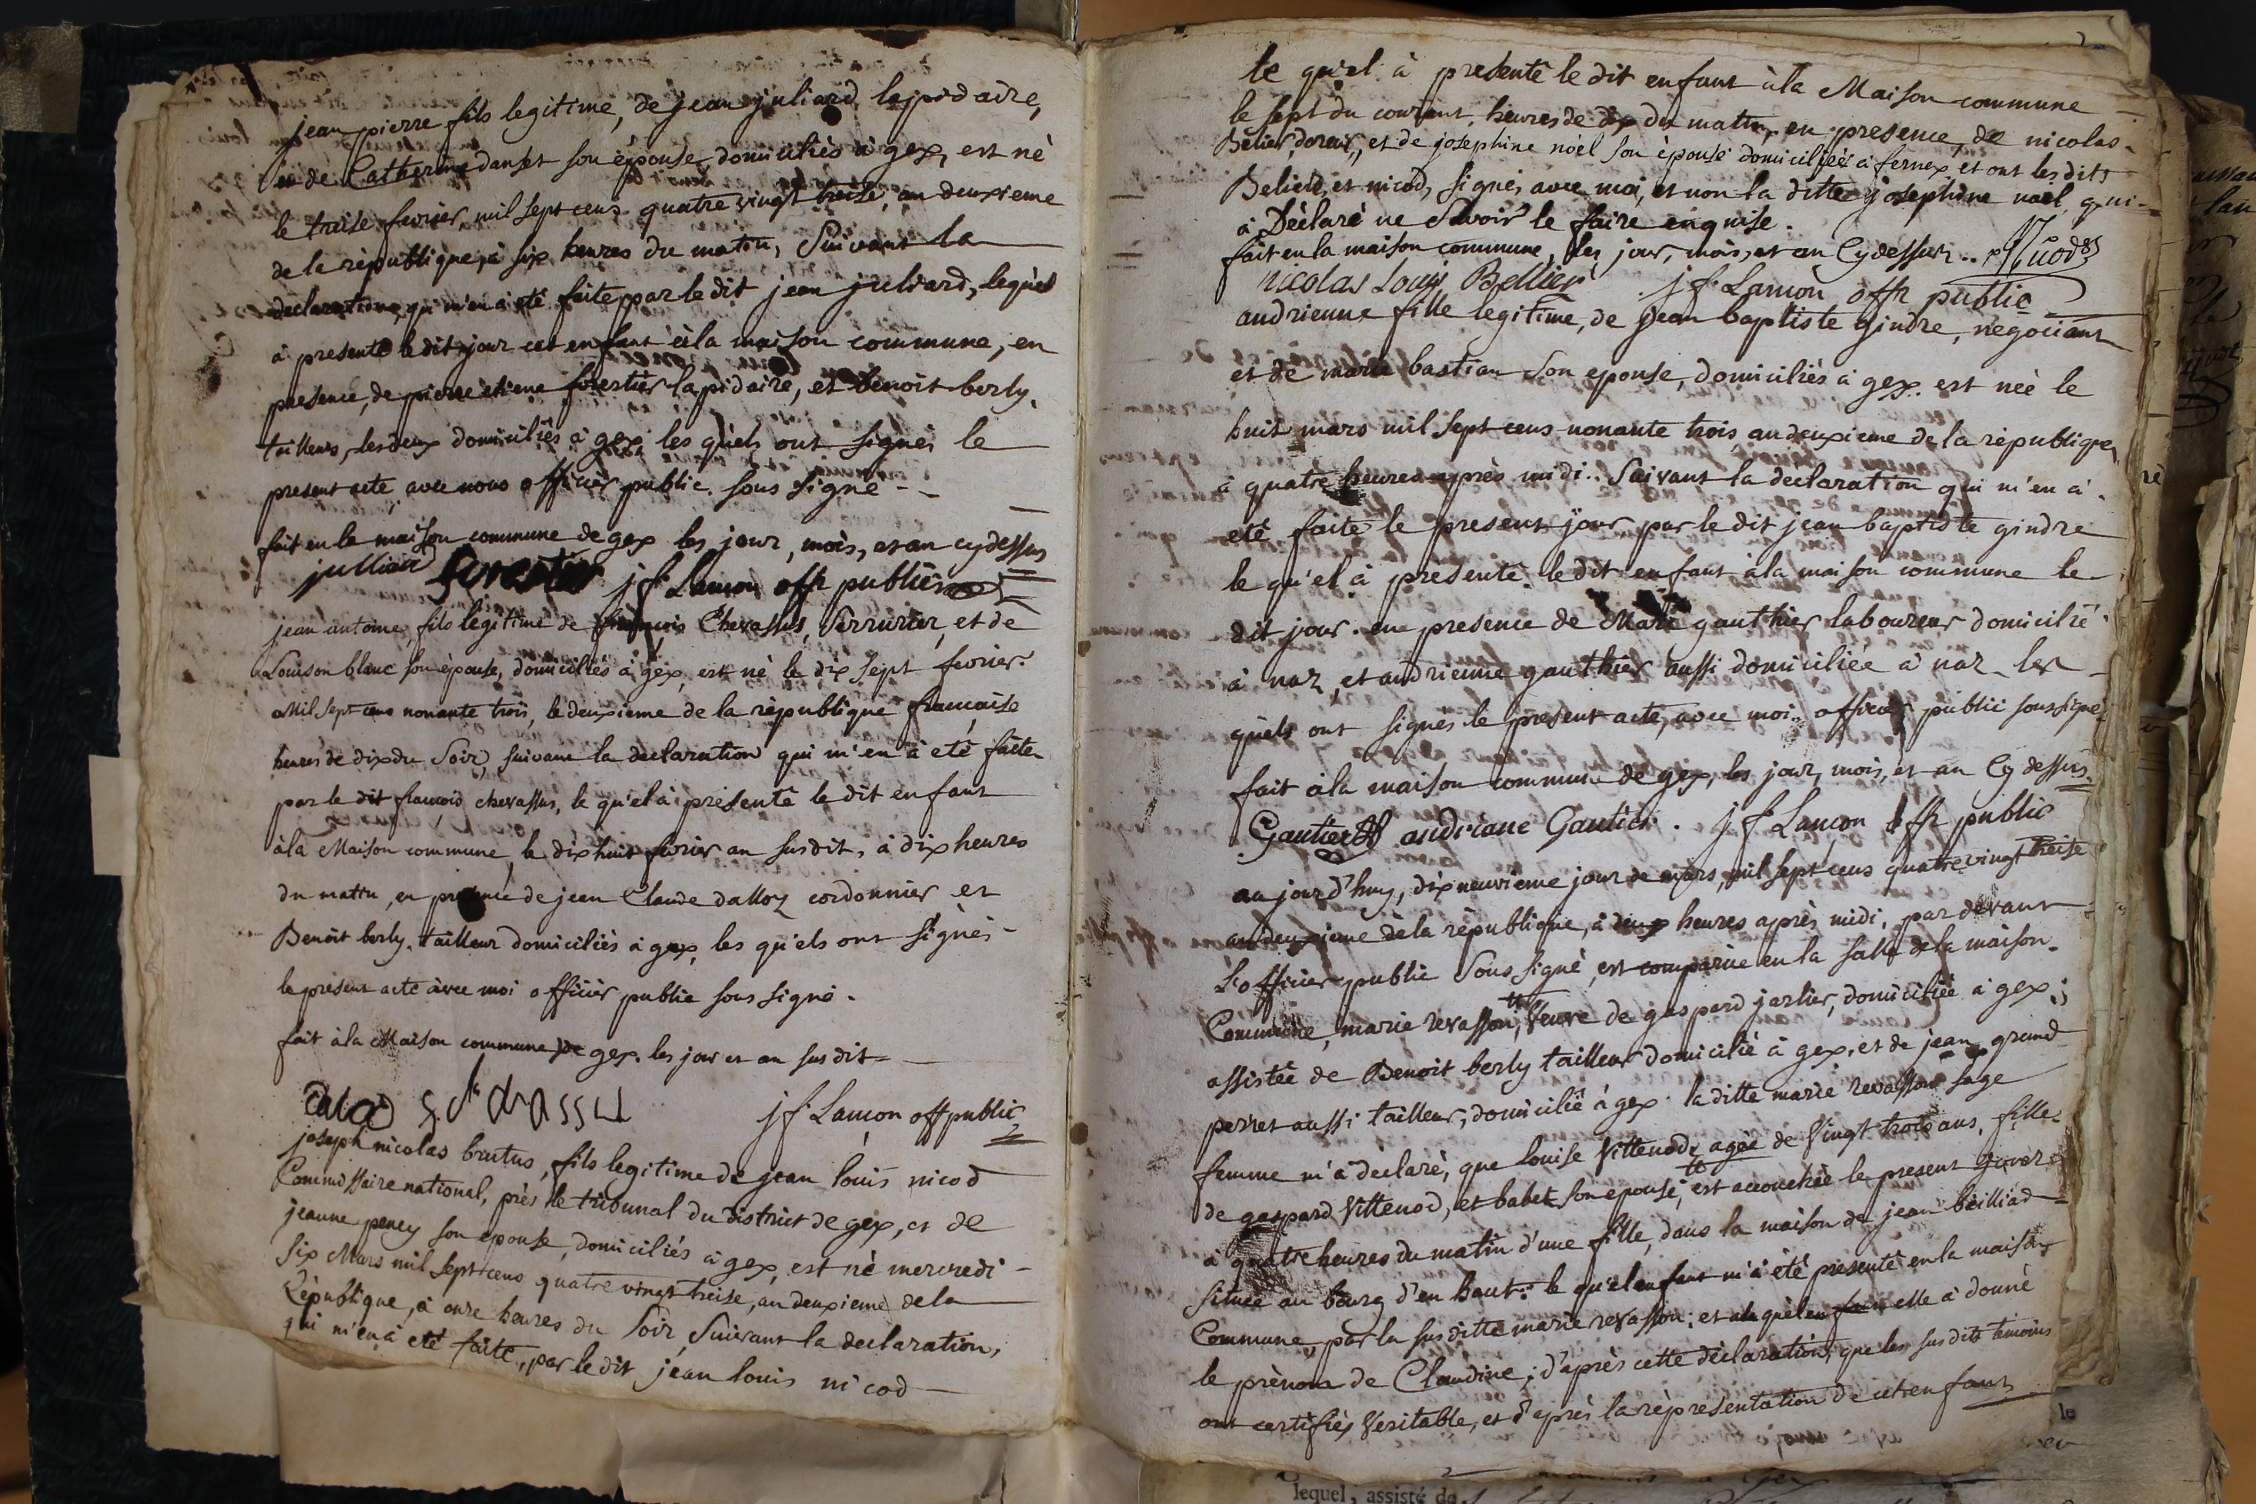 jean pierre fils legitime, de jean juliard lapidaire,
et de Catherine danset son épouse domiciliés à gex, est né
le treise fevrier, mil sept cens quatre vingt treise, an deuxieme
de la republique, à six heures du matin, Suivant la
declaration, qui m'en à eté faite par le dit jean juliard, lequel
à presenté le dit jour cet enfant à la maison commune, en
presence, de pierre etiene forestier lapidaire, et benoit berly,
tailleurs, les deux domiciliés à gex, les quels ont signés le
present acte avec nous officier public sous signé - -
fait en la maison commune de gex les jour, mois, et an cydessus
julliard forestier jf. Lançon offr public
jean antoine fils legitime de françois Chevassus, Serrurier, et de
Louison blanc son épouse, domiciliés à gex, est né le dix sept fevrier
Mil sept cens nonante trois, le deuxieme de la république francaise
heures de dix du Soir, suivant la declaration qui m'en à eté faite
par le dit françois chevassus, le qu'el à presenté le dit enfant
à la Maison commune, le dix huit fevrier an susdit, à dix heures
du matin, en presence de jean Claude dalloz cordonnier et
Benoit berly tailleur domiciliés à gex, les qu'els ont signés -
le present acte avec moi officier public sous signé.
fait à la Maison commune de gex. les jour et an susdit
jf. Lançon off public
joseph nicolas brutus, fils legitime de jean louis nicod
Commissaire national, près le tribunal du district de gex, et de
jeanne peney son epouse, domiciliés à gex, est né mercredi -
Six Mars mil sept cens quatre vingt treise, an deuxieme de la
République, à onze heures du soir, Suivant la declaration,
qui m'en à eté faite, par le dit jean louis nicod -
le qu'el à presenté le dit enfant à la Maison commune
le sept du courant, heures de dix du matin, en presence, de nicolas
Belier, doreur, et de josephine noèl son épouse domiciliées à fernex et ont les dits
Beliers, et nicod, signés avec moi, et non la ditte josephine noel, qui -
à Déclaré ne Savoir le faire enquise.
fait en la maison commune, les jour, mois, et an Cydessus .. Nicod
nicolas Louis Bellier jf. Lançon offr public
andrienne fille legitime, de jean baptiste gindre, negociant
et de marie bastian son epouse, domiciliés à gex. est née le
huit mars mil sept cens nonante trois an deuxieme de la république
à quatre heures après midi.. Suivant la declaration qui m'en à
eté faite le present jour par le dit jean baptiste gindre
le qu'el à présenté le dit enfant à la maison commune le
dit jour. en presence de Marc gauthier laboureur domicilié
à naz, et andrienne gauthier aussi domiciliée à naz les
quels ont signés le present acte, avec moi officier public soussigné
fait à la maison commune de gex, les jour, mois, et an Cy dessus
Gautier andriane Gautier. jf Lançon offr public
au jour d'huy, dix neuvieme jour de mars, mil sept cens quatre vingt treise
an deuxieme de la république, à deux heures après midi, par devant
L'officier public Sous signé, est comparue en la salle de la maison
Commune, marie revasson, veuve de gaspard jarlier, domiciliée à gex;
assistée de Benoit berly tailleur domicilié à gex, et de jean grand
perret aussi tailleur, domicilié à gex. la ditte marie revasson sage
femme m'a declaré, que louise Vittenod, agée de vingt trois ans, fille
de gaspard Vittenod, et babet son epouse, est accouchée le present jour
à quatre heures du matin d'une fille, dans la maison de jean beilliad
située au bourg d'en haut: le qu'el enfant m'à été presenté en la maison
Commune, par la sus ditte marie revasson; et au quel enfant elle à donné
le prénom de Claudine; d'après cette déclaration, que les susdits temoins
ont certifiés Veritable, et d'après la représentation de cet enfant
lequel, assisté de